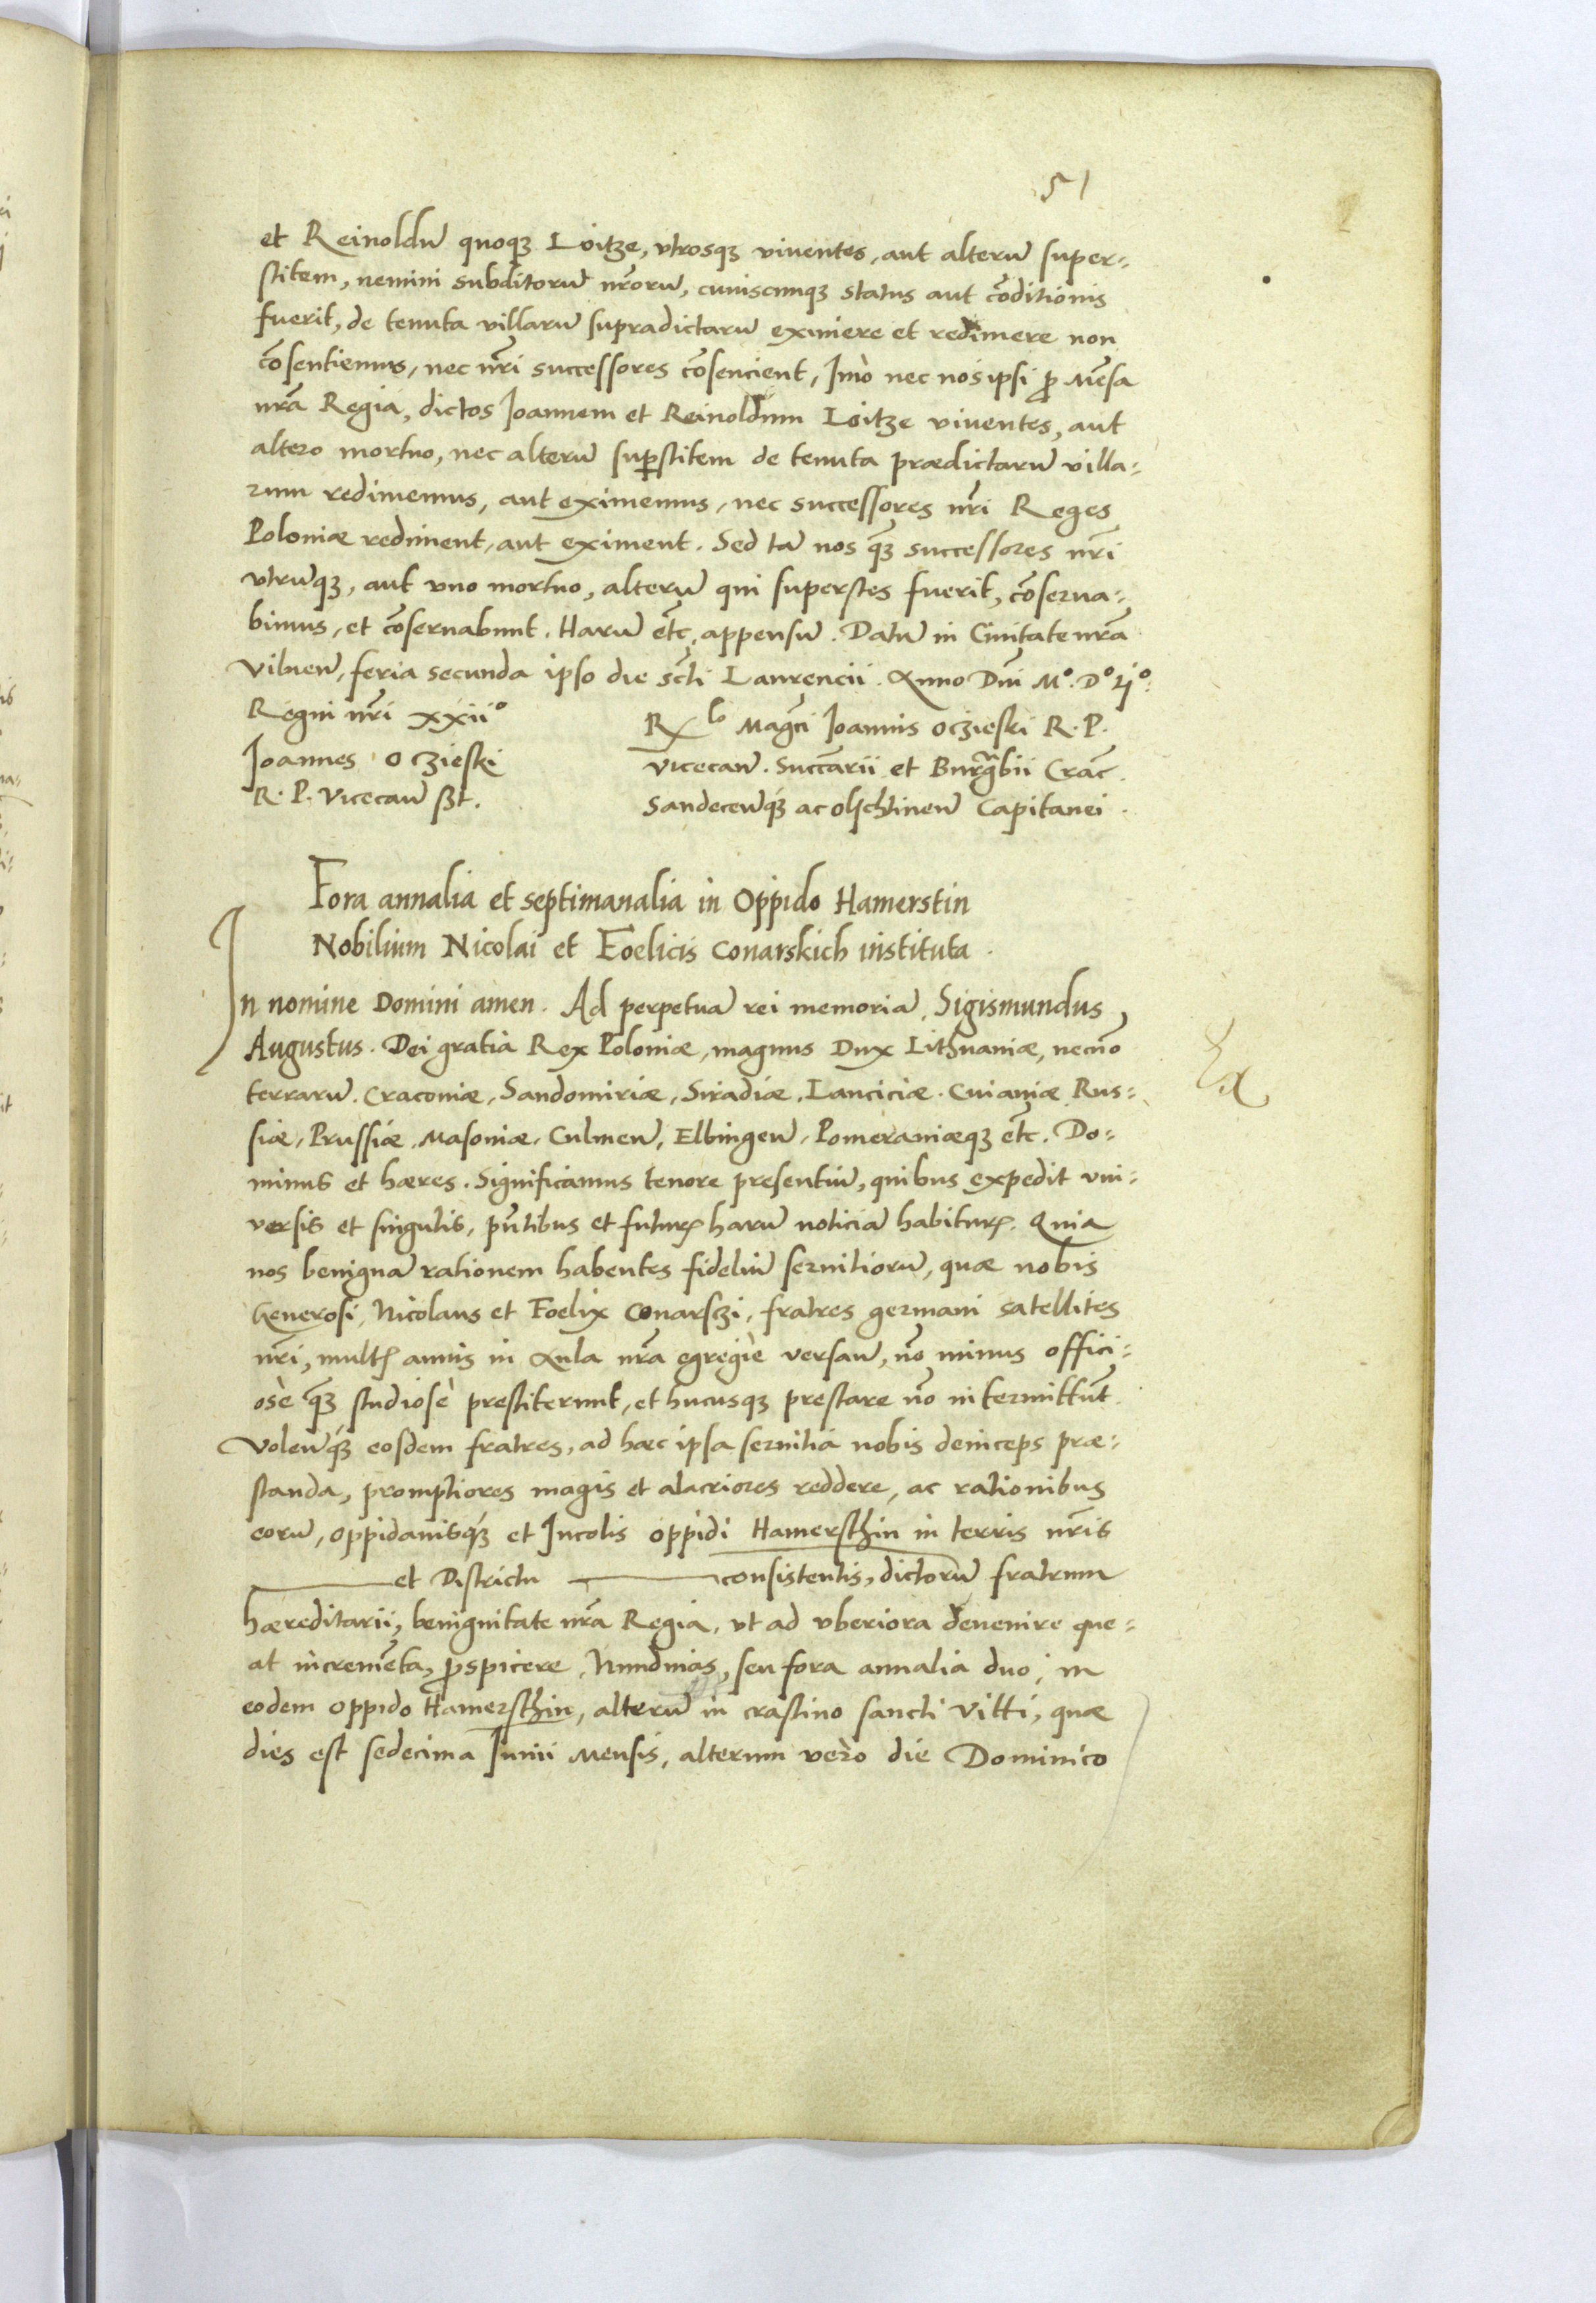 51
et Reinoldũ quoqꝫ Loitze, vtrosqꝫ viuentes, aut alterũ super-
stitem, nemini subditorũ nr̃orũ, cuiuscunqꝫ status aut cõditionis
fuerit, de tenuta villarũ supradictarũ eximere et redimere non
cõsentiemus, nec nr̃i successores cõsencient, Imò nec nos ipsi ꝓ Mẽsa
nr̃a Regia, dictos Joannem et Reinoldum Loitze viuentes, aut
altero mortuo, nec alterũ suꝑstitem de tenuta prædictarũ villa-
rum redimemus, aut eximemus, nec successores nr̃i Reges
Poloniæ rediment, aut eximent. Sed tã nos qꝫ̃ successores nr̃i
vtrũqꝫ, aut vno mortuo, alterũ qui superstes fuerit, cõserua-
bimus, et cõseruabunt. Harũ et̃c. appensũ. Datũ in Ciuitate nr̃a
Vilneñ, feria secunda ipso die sc̃ti Laurencii. Anno Dñi M°. D° Lj°.
Regni nr̃i xxii°
Joannes Oczieski
R. P. Vicecañ sßt.
Rlo Mag̃ci Joannis Oczieski R. P.
Vicecañ. Succ̃arii et Burg̃rabii Crac̃.
Sandeceñqꝫ ac Olschtineñ Capitanei.
Fora annalia et septimanalia in Oppido Hamerstin
Nobilium Nicolai et Foelicis Conarskich instituta.
In nomine Domini amen. Ad perpetuã rei memoriã. Sigismundus
Augustus. Dei gratia Rex Poloniæ, magnus Dux Lithuaniæ, necñõ
terrarũ. Cracouiæ, Sandomiriæ, Siradiæ, Lanciciæ. Cuiauiæ. Rus-
siæ, Prussiæ. Masouiæ. Culmeñ, Elbingeñ, Pomeraniæqꝫ et̃c. Do-
minus et hæres. Significamus tenore presentiũ, quibus expedit vni-
versis et singulis, pñtibus et futurꝭ harũ noticiã habiturꝭ. Quia
nos benignã rationem habentes fideliũ seruitiorũ, quæ nobis
Generosi, Nicolaus et Foelix Conarsczi, fratres germani satellites
nr̃i, multꝭ annis in Aula nr̃a egregiè versañ, nõ minus offici-
osè qꝫ̃ studiosè prestiterunt, et hucusqꝫ prestare nõ intermittũt.
Voleñqꝫ eosdem fratres, ad hæc ipsa seruitia nobis deinceps præ-
standa, promptiores magis et alacriores reddere, ac rationibus
eorũ, oppidanisqꝫ et Incolis oppidi Hamersthin in terris nr̃is
et Districtu consistentis, dictorũ fratrum
hæreditarii, benignitate nr̃a Regia, vt ad vberiora deuenire que-
at incremẽta, ꝓspicere, Nundinas, seu fora annalia duo, in
eodem oppido Hamersthin, alterũ in crastino sancti Vitti, quæ
dies est sedecima Junii Mensis, alterum verò die Dominico